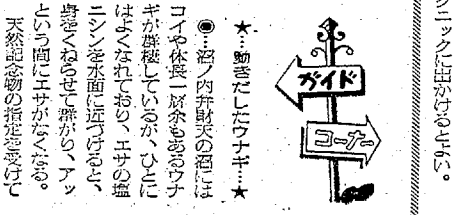 クニックに出かけるとよい。
ガイド
コーナー
★…動きだしたウナギ…★
◉…沼ノ内弁財天の沼には
コイや体長一㍍余もあるウナ
ギが群棲しているが、ひとに
はよくなれており、エサの塩
ニシンを水面に近づけると、
身をくねらせて群がり、アッ
という間にエサがなくなる。
天然記念物の指定を受けて